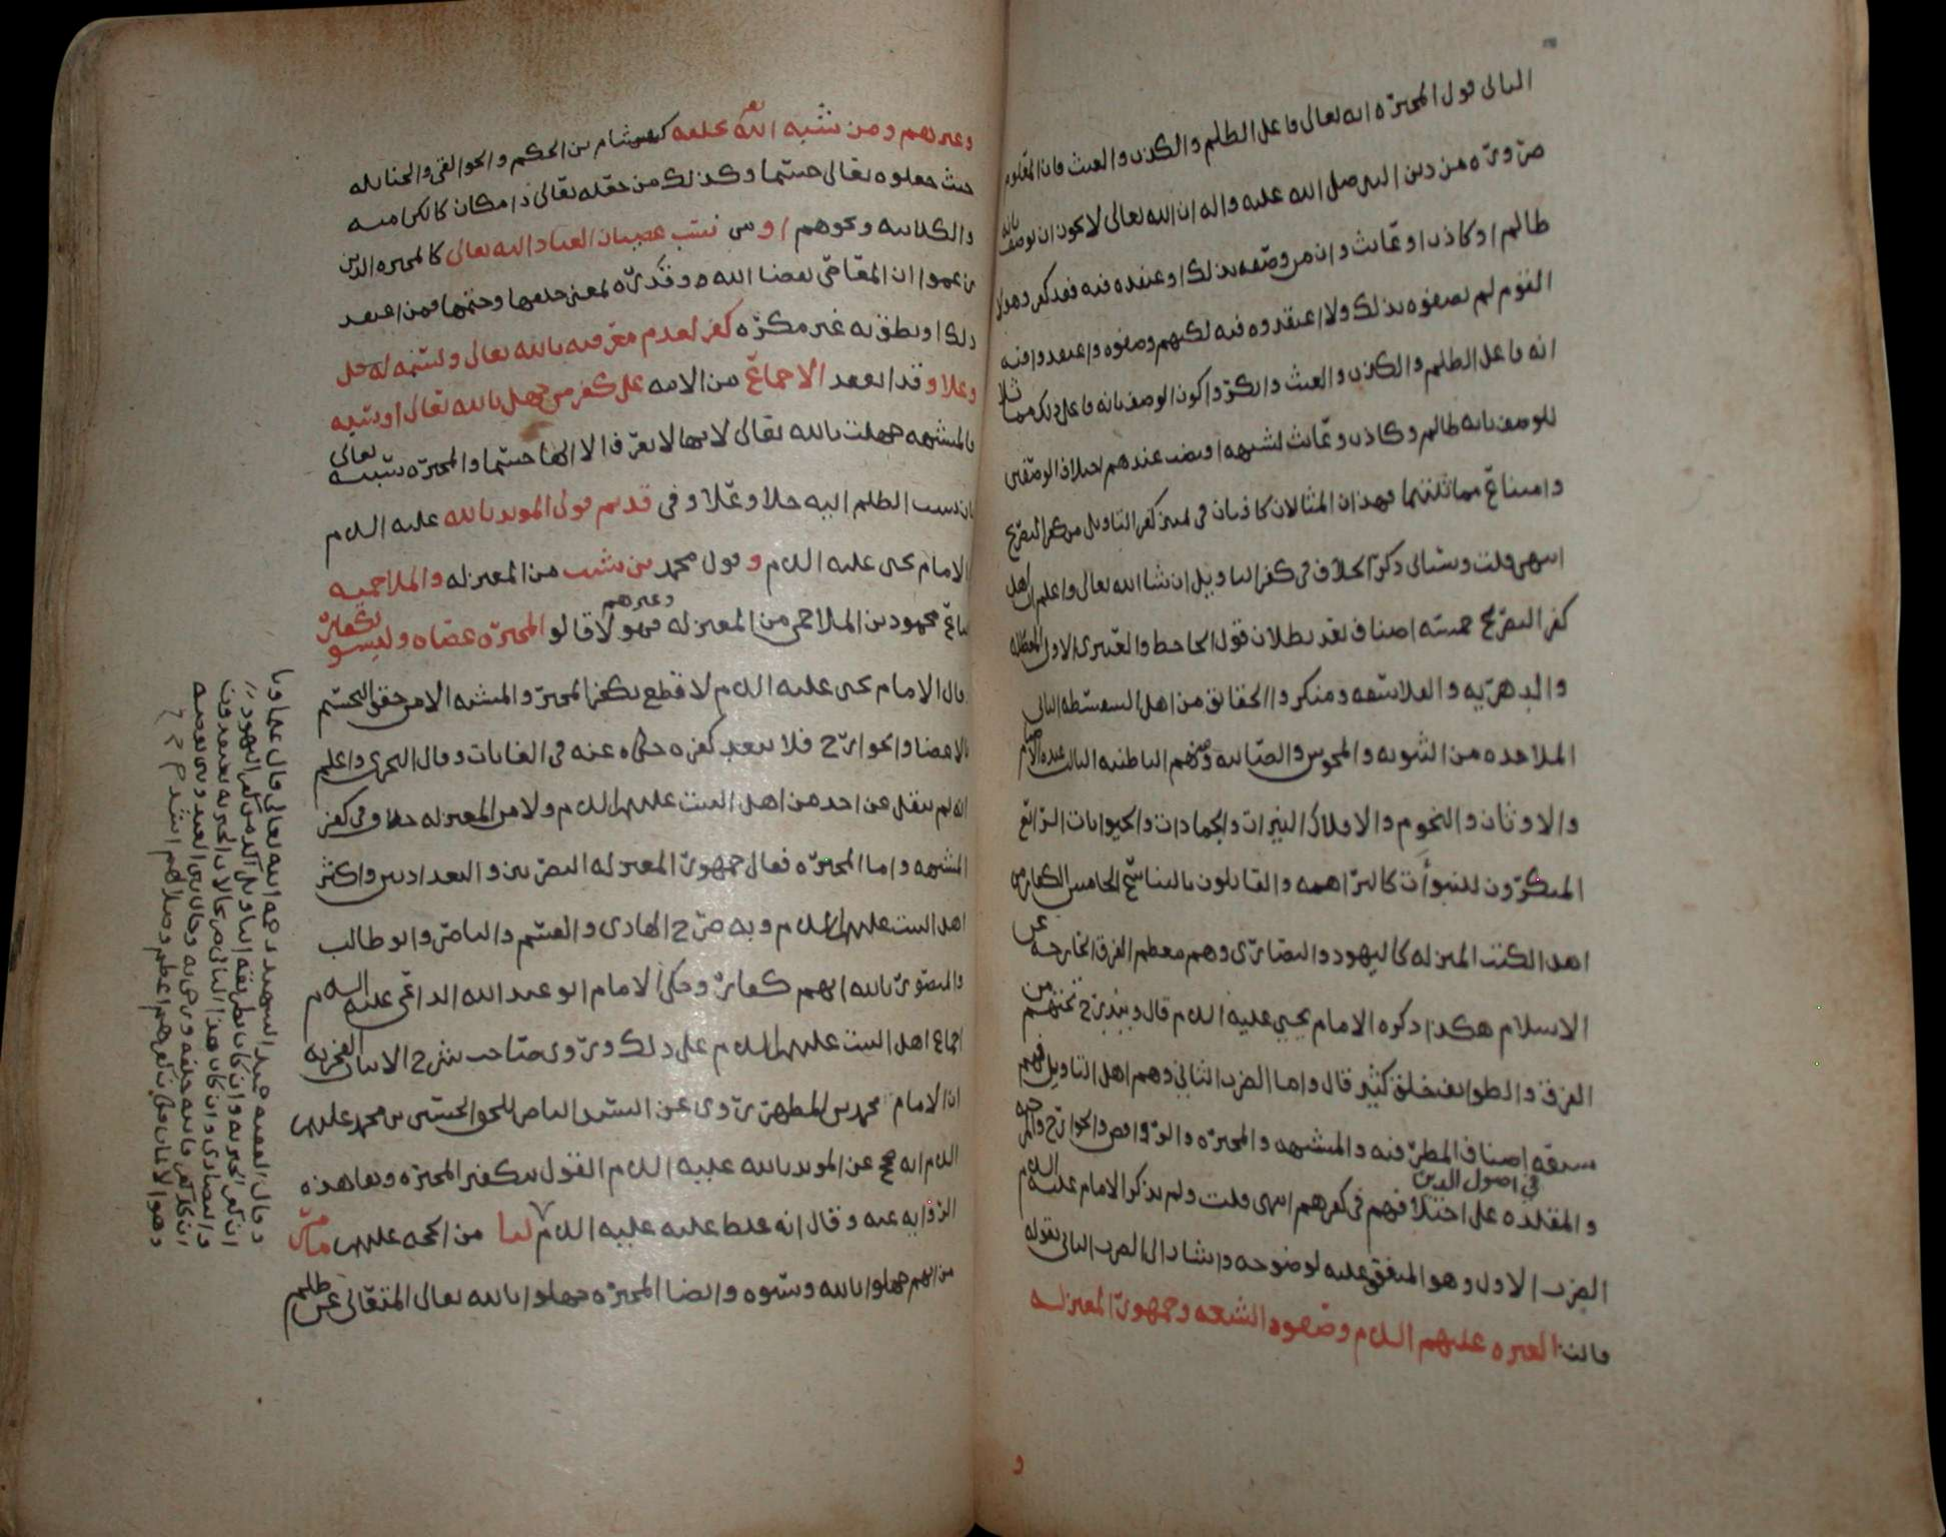 الثانى قول المجبرة انه تعالى فاعل الظلم والكذب والعبث فان المعلوم
ضرورة من دين النبى صلى الله عليه واله ان الله تعالى لا يجوز ان يوصف بانه
ظالم او كاذب او عابث وان من وصفه بذلك او اعتقده فيه فقد كفر وهولا
القوم لم يصفوه بذلك ولا اعتقدوه فيه لكنهم وصفوه واعتقدوا فيه
انه فاعل الظلم والكذب والعبث وانكروا كون الوصف بانه فاعل ذلك مماثلا
للوصف بانه ظالم وكاذب وعابث لشبهه اقتضت عندهم اختلاف الوصفين
وامتناع مماثلتهما فهذان المثالان كافيان فى تمييز كفر التاويل من كفر التصريح
انتهى قلت وسياتى ذكر الخلاف فى كفر التاويل ان شا الله تعالى واعلم ان اهل
كفر التصريح خمسة اصناف بعد بطلان قول الجاحظ والعنبرى الاول المعطله
والدهرية والفلاسفه ومنكروا الحقائق من اهل السفسطه الثانى
الملاحده من الثنويه والمجوس والصابيه ومنهم الباطنيه الثالث عبدة الاصنام
والاوثان والنجوم والافلاك النيرات والجمادات والحيوانات الرابع
المنكرون للنبوأت كالبراهمه والقايلون بالتناسخ الخامس الكفار من
اهل الكتب المنزله كاليهود والنصارى وهم معظم الفرق الخارجه عن
الاسلام هكذا ذكره الامام يحيى عليه السلام قال ويندرج تحتهم من
الفرق والطوايف خلق كثير قال واما الضرب الثانى وهم اهل التاويل فهم
سبعه اصناف المطرفيه والمشبهه والمجبره والروافض والخوارج والمرجيه
والمقلده على اختلافهم فى كفرهم انتهى قلت ولم يذكر الامام عليه السلام فى اصول الدين
الضرب الاول وهو المتفق عليه لوضوحه واشار الى الضرب الثانى بقوله
قالت العتره عليهم السلام وصفوه الشيعه وجمهور المعتزله
وغيرهم ومن شبه الله تعالى بخلقه كهشام بن الحكم والجوالقى والحنابله
حيث جعلوه تعالى جسما وكذلك من جعله تعالى ذا مكان كالكراميه
والكلابيه ونحوهم او من نسب عصيان العباد اليه تعالى كالمجبره الذين
زعموا ان المعاصى بقضا الله وقدره بمعنى خلقها وحتمها فمن اعتقد
ذلك او نطق به غير مكره كفر لعدم معرفته بالله تعالى ولسبه له جل
وعلا وقد انعقد الاجماع من الامه على كفر من جهل بالله تعالى او سبه
فالمشبهه جهلت بالله تعالى لانها لا تعرف الا الها جسما والمجبره سبته تعالى
بان نسبت الظلم اليه جلا وعلا وفى قديم قولى المويد بالله عليه السلم
والامام يحى عليه السلم وقول محمد بن شبيب من المعتزله والملاحميه
اتباع محمود بن الملاحمى من المعتزله وغيرهم فهولا قالو المجبره عصاه وليسو بكفار
قال الامام يحى عليه السلم لا قطع بكفر المجبر والمشبه الا من حقق التجسيم
بالاعضا والجوارح فلا يبعد كفره حكاه عنه فى الغايات وقال النجرى واعلم
انه لم ينقل عن احد من اهل البيت عليهم السلم ولا من المعتزله خلاف فى كفر
المشبهه واما المجبره فقال جمهور المعتزله البصريين والبغداديين واكثر
اهل البيت عليهم السلم وبه صرح الهادى والقسم والناصر وابو طالب
والمنصور بالله انهم كفار وحكى الامام ابو عبد الله الداعى عليه السلم
اجماع اهل البيت عليهم السلم على ذلك وروى صاحب شرح الابيات الفخريه
ان الامام محمد بن المطهر روى عن السيد الناصر للحق الحسين بن محمد عليهم
السلم انه صح عن المويد بالله عليه السلم القول بتكفير المجبره ونفا هذه
الروايه عنه وقال انه غلط عليه عليه السلم لنا من الحجه عليهم ما مر
من انهم جهلوا بالله وسبوه وايضا المجبره جهلوا بالله تعالى المتعالى عن ظلم
وقال الفقيه حميد الشهيد رحمه الله تعالى قال علماونا
ان كفر المجبره وان كان طريقه التاويل اكد من كفر اليهود
والنصارى وان كان هذا التاويل
وهو الايمان